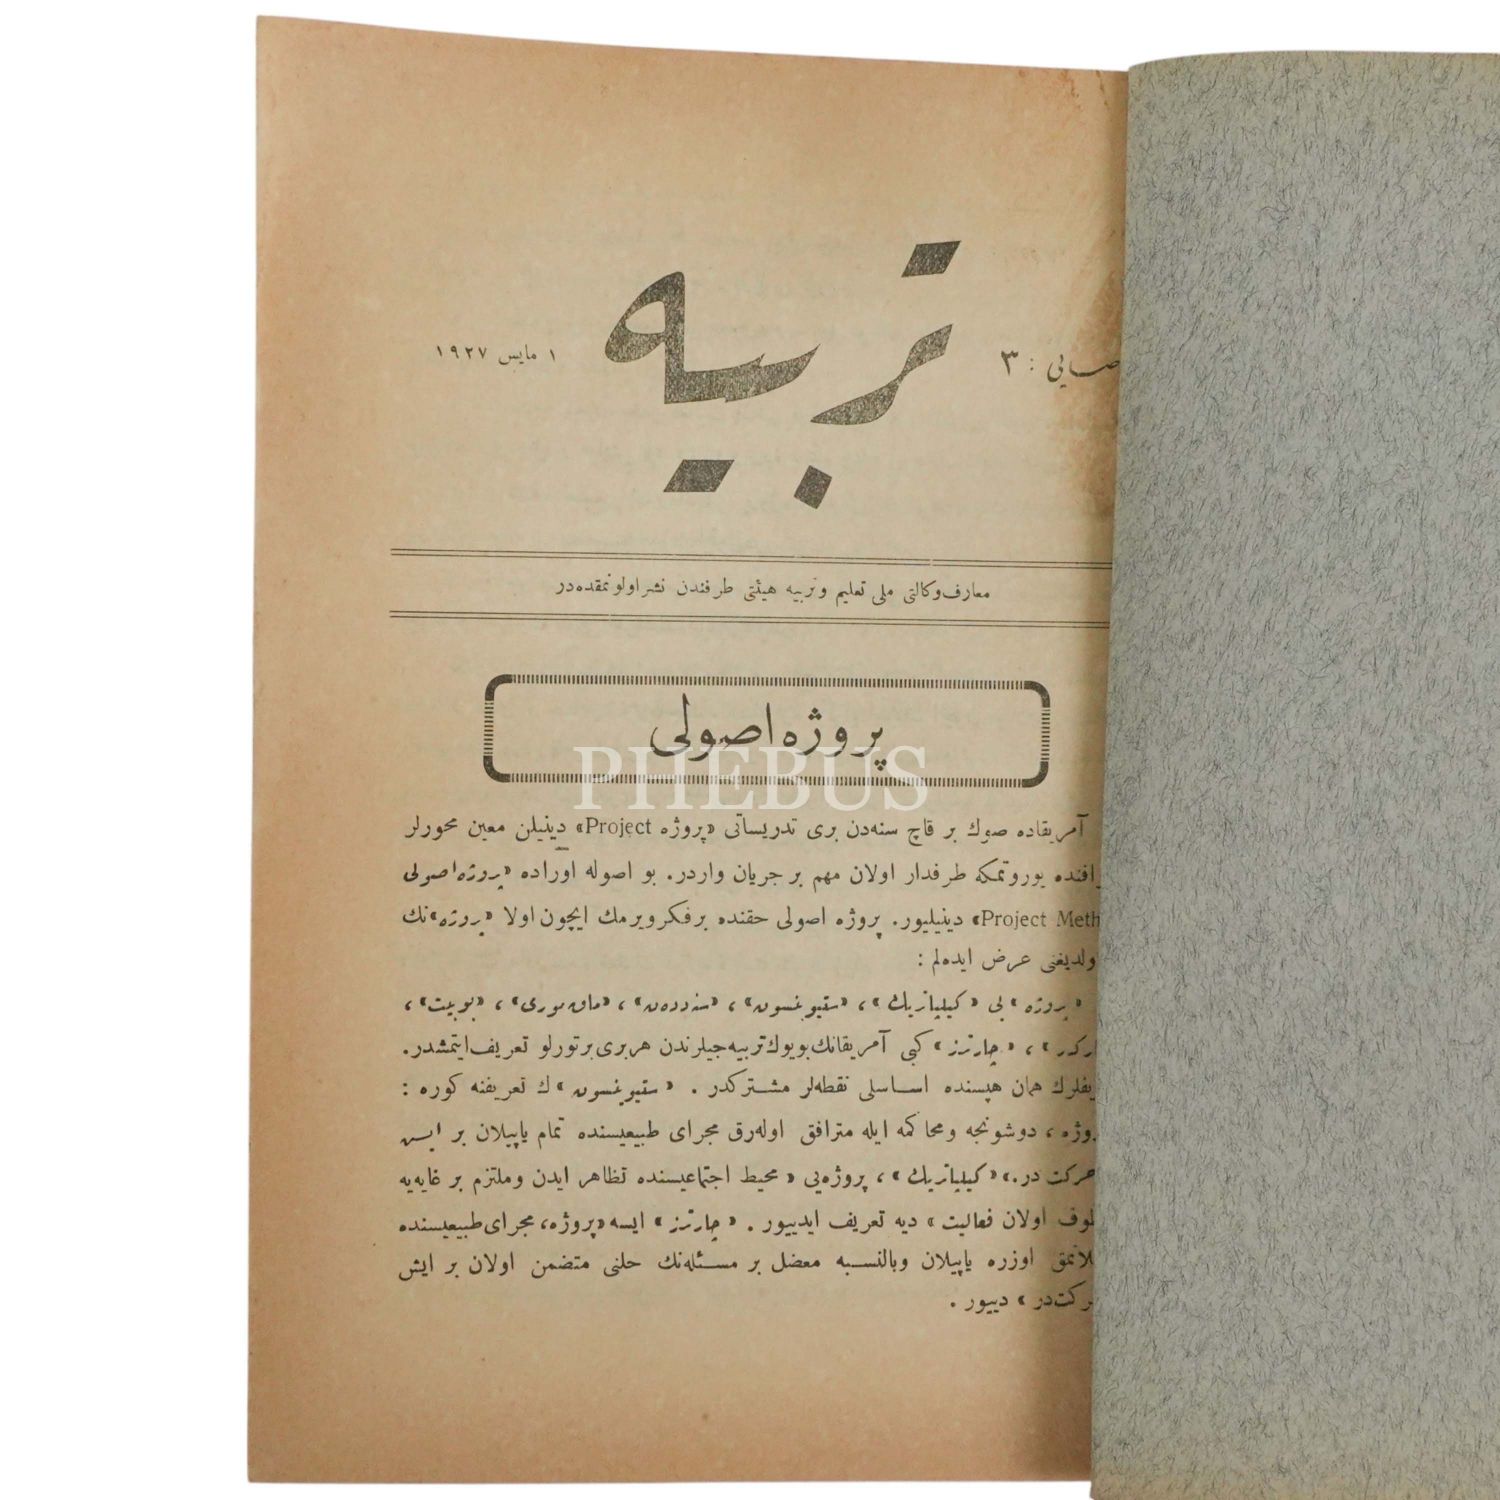 تربيه
صايى : ٣
١ مايس ١٩٢٧
معارف وكالتى ملى تعليم وتربيه هيئتى طرفندن نشر اولونمقده در
پروژه اصولى
PHEBUS
آمريقاده صوك بر قاچ سنه‌دن برى تدريساتى «پروژه Project» دينيلن معين محورلر
يوروتمكه طرفدار اولان مهم بر جريان واردر. بو اصوله اوراده «پروژه اصولى
Project Meth» دينيليور. پروژه اصولى حقنده بر فكر ويرمك ايچون اولا «پروژه» نك
ولديغنى عرض ايده‌لم :
«پروژه» يى «كيلپاتريك»، «ستيونسون»، «سنه‌ددەن»، «ماق مورى»، «بوبيت»،
«چارترز» كبى آمريقانك بويوك تربيه‌جيلرندن هر برى بر تورلو تعريف ايتمشدر.
يفلرك همان هپسنده اساسلى نقطه‌لر مشتركدر. «ستيونسون» ك تعريفنه كوره :
وژه، دوشونجه ومحاكمه ايله مترافق اوله‌رق مجراى طبيعيسنده تمام ياپيلان بر ايس
حركت در.» «كيلپاتريك»، پروژه‌يى «محيط اجتماعيسنده تظاهر ايدن وملتزم بر غايه‌يه
اولان فعاليت» ديه تعريف ايدييور. «چارترز» ايسه «پروژه، مجراى طبيعيسنده
اوزره ياپيلان وبالنسبه معضل بر مسئله‌نك حلنى متضمن اولان بر ايش
ركت در» دييور.